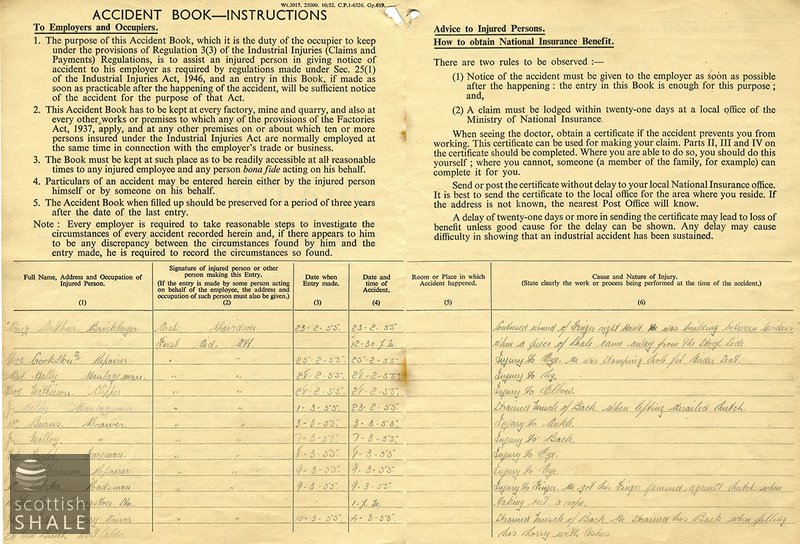 Wt.3017. 25000. 10/52. C.P.1-6326. Gp.619.
ACCIDENT BOOK—INSTRUCTIONS
To Employers and Occupiers.
1. The purpose of this Accident Book, which it is the duty of the occupier to keep
under the provisions of Regulation 3(3) of the Industrial Injuries (Claims and
Payments) Regulations, is to assist an injured person in giving notice of
accident to his employer as required by regulations made under Sec. 25(1)
of the Industrial Injuries Act, 1946, and an entry in this Book, if made as
soon as practicable after the happening of the accident, will be sufficient notice
of the accident for the purpose of that Act.
2. This Accident Book has to be kept at every factory, mine and quarry, and also at
every other works or premises to which any of the provisions of the Factories
Act, 1937, apply, and at any other premises on or about which ten or more
persons insured under the Industrial Injuries Act are normally employed at
the same time in connection with the employer's trade or business.
3. The Book must be kept at such place as to be readily accessible at all reasonable
times to any injured employee and any person bona fide acting on his behalf.
4. Particulars of an accident may be entered herein either by the injured person
himself or by someone on his behalf.
5. The Accident Book when filled up should be preserved for a period of three years
after the date of the last entry.
Note : Every employer is required to take reasonable steps to investigate the
circumstances of every accident recorded herein and, if there appears to him
to be any discrepancy between the circumstances found by him and the
entry made, he is required to record the circumstances so found.
Advice to Injured Persons.
How to obtain National Insurance Benefit.
There are two rules to be observed :—
(1) Notice of the accident must be given to the employer as soon as possible
after the happening : the entry in this Book is enough for this purpose ;
and,
(2) A claim must be lodged within twenty-one days at a local office of the
Ministry of National Insurance.
When seeing the doctor, obtain a certificate if the accident prevents you from
working. This certificate can be used for making your claim. Parts II, III and IV on
the certificate should be completed. Where you are able to do so, you should do this
yourself ; where you cannot, someone (a member of the family, for example) can
complete it for you.
Send or post the certificate without delay to your local National Insurance office.
It is best to send the certificate to the local office for the area where you reside. If
the address is not known, the nearest Post Office will know.
A delay of twenty-one days or more in sending the certificate may lead to loss of
benefit unless good cause for the delay can be shown. Any delay may cause
difficulty in showing that an industrial accident has been sustained.
Full Name, Address and Occupation of Injured Person. (1)
Signature of injured person or other person making this Entry. (If the entry is made by some person acting on behalf of the employee, the address and occupation of such person must also be given.) (2)
Date when Entry made. (3)
Date and time of Accident. (4)
Room or Place in which Accident happened. (5)
Cause and Nature of Injury. (State clearly the work or process being performed at the time of accident.) (6)
Arthur Bricklayer Davidson 23-2-55. 23-2-55. Contused wound of Finger right Hand. He was building between
First Aid 12-30 p.m. when a piece of Shale came away from the side.
Thos Crookston Repairer " " 25-2-55. 25-2-55. Injury to Eye. He was Clamping hole for Girder Seat.
Hally Haulageman. " " 28-2-55. Injury to Leg.
Thos Mathieson " " Injury to Elbow.
Kelly " " 1-3-55. 23-2-55. Strained Muscle of Back when lifting derailed hutch.
Wm Burns Drawer " " 3-3-55. 3-3-55. Injury to Ankle.
Jn Molloy " " " 7-3-55. 7-3-55. Injury to Back.
" " Injury to Eye.
Repairer " " 9-3-55. 9-3-55. Injury to Eye.
Roadsman " " 9-3-55. 9-3-55. Injury to Finger. He got his Finger jammed against hutch when
1 p.m. taking out a rope.
Driver " " 10-3-55. 4-3-55. Strained Muscle of Back. He Strained his Back when filling
West Calder. his Lorry with Ashes.
scottish
SHALE